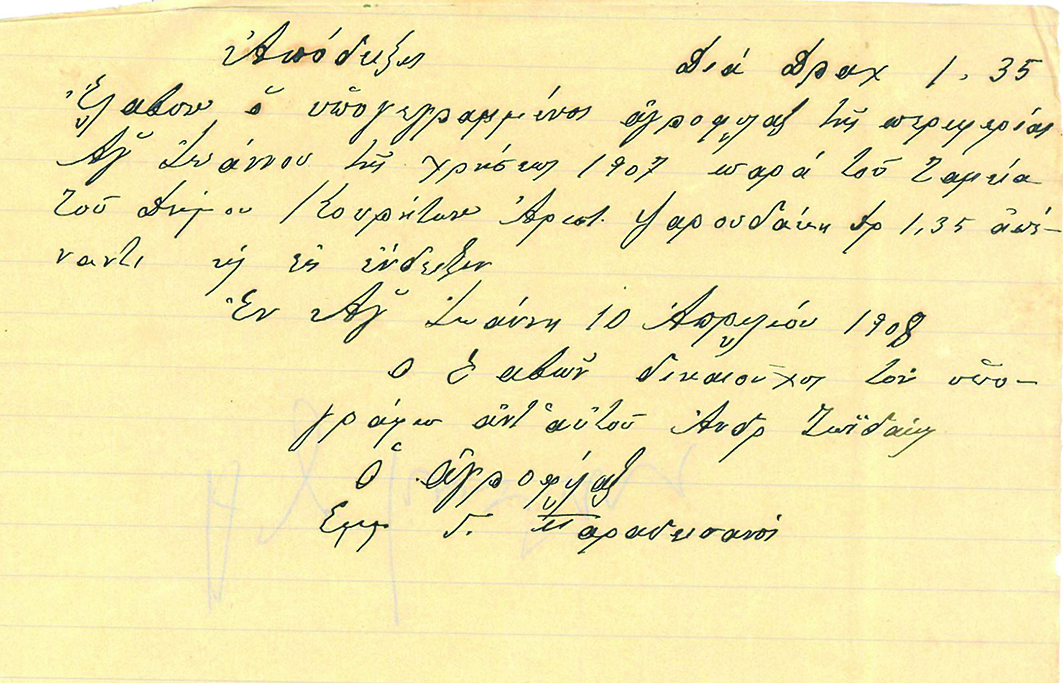 Ἀπόδειξις Διά Δραχ 1.35
Ἔλαβον ὁ ὑπογεγραμμένος ἀγροφύλαξ τῆς περιφερίας
Ἁγ Ἰωάννου τῆς χρήσεως 1907 παρά τοῦ Ταμεία
τοῦ Δήμου Κουρήτων Ἀριστ. Ψαρουδάκη δρ 1,35 ἀπέ-
ναντι εἰς ἔνδειξιν
Ἐν Ἁγ Ἰωάννη 10 Ἀπριλίου 1908
Ο λαβών δικαιοῦχος τόν ὑπο-
γράφω ἀντ' αὐτοῦ Ἀνδρ Ζωϊδάκης
Ὁ ἀγροφύλαξ
Εμμ Γ. Παραδεισανός